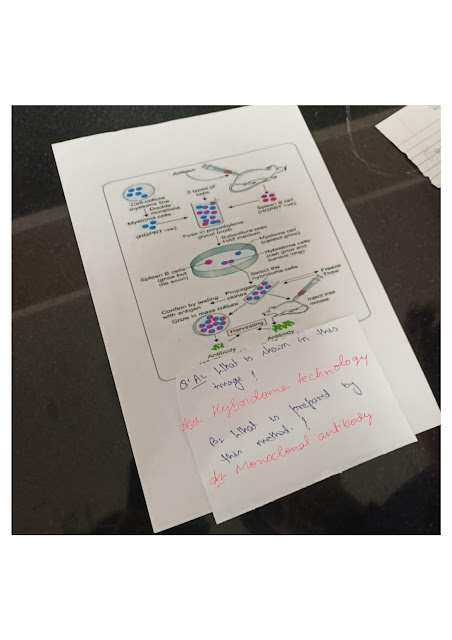 Antigen
Cell culture
myeloma line
Double
mutations
Myeloma cells
(HGPRT -ve)
3 types of
cells
Spleen B cell
(HGPRT +ve)
Fuse in polyethylene
glycol broth
Subculture onto
HAT medium
Myeloma cell
(cannot grow)
Spleen B cells
(grow but
die soon)
Hybridoma cells
(can grow and
survive long)
Select the
hybridoma cells
Freeze
Thaw
Propagate
clones
Confirm by testing
with antigen
Grow in mass culture
Inject into
mouse
Harvesting
Antibody
Antibody
Q. A- What is shown in this
image?
Hybridoma technology
B- What is prepared by
this method?
Monoclonal antibody